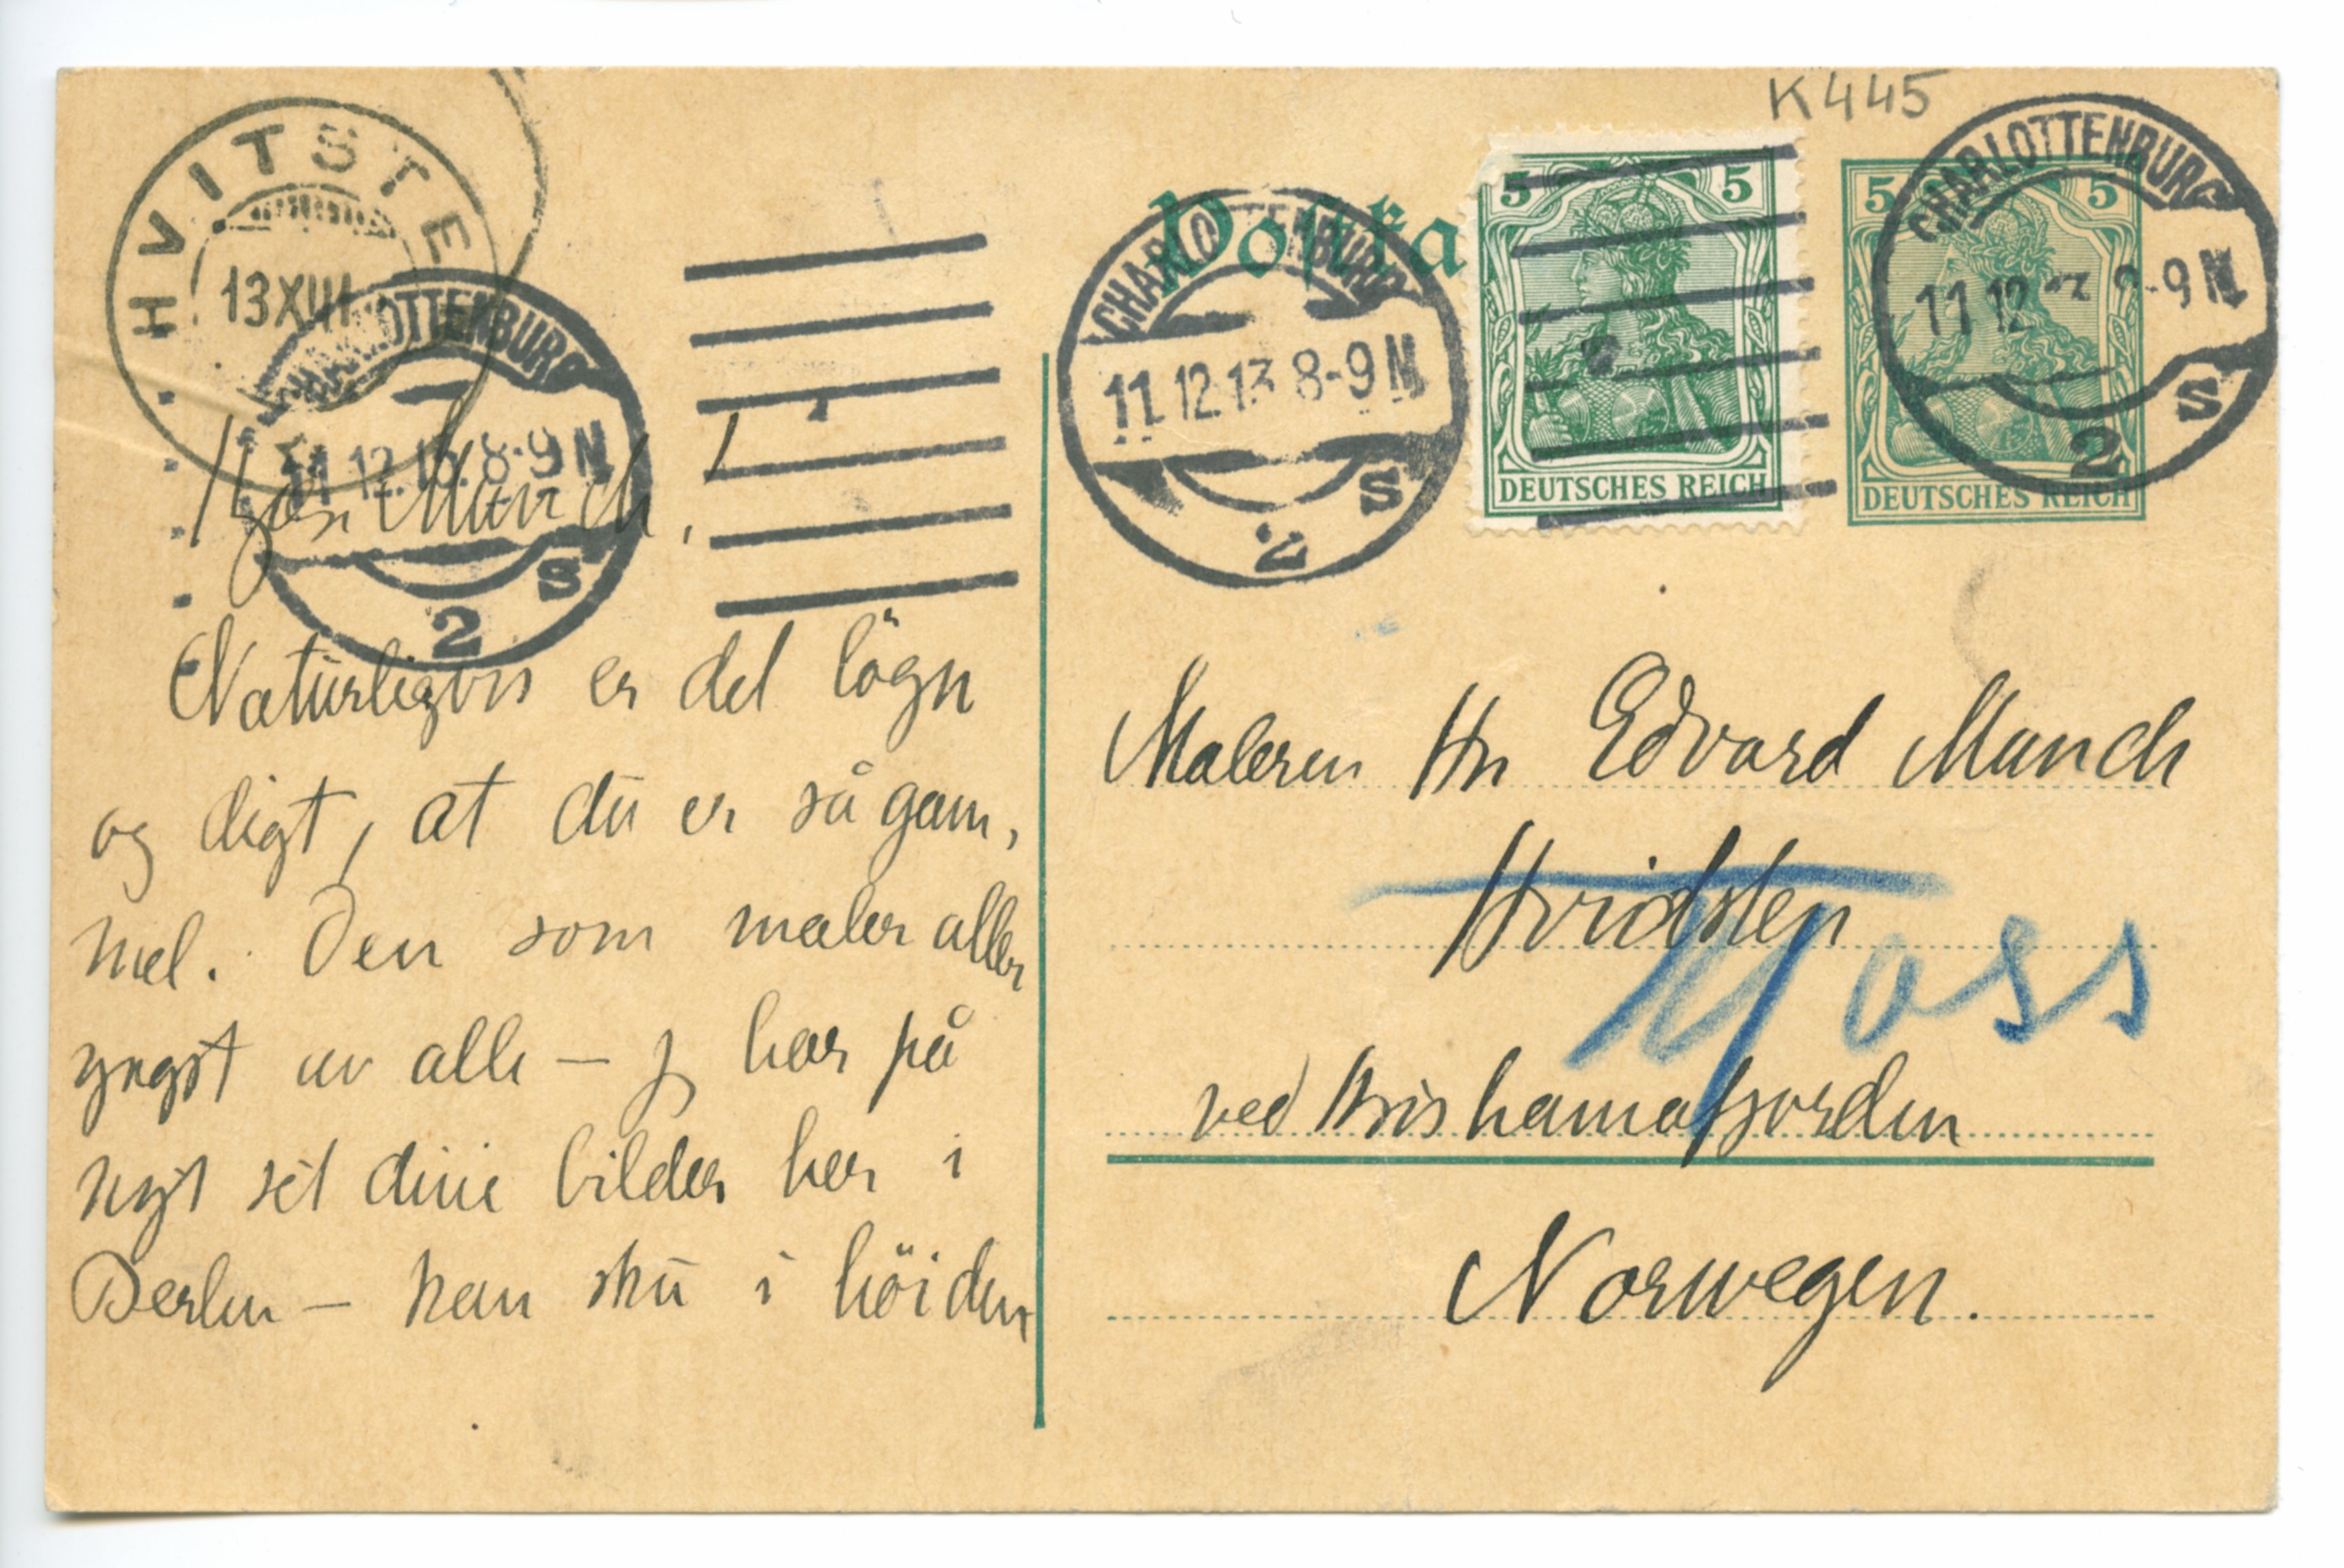 K445
HVITSTE
13 XII
CHARLOTTENBURG
11.12.13. 8-9 N
2 S
Postka
CHARLOTTENBURG
11.12.13 8-9 N
2 S
5 5
DEUTSCHES REICH
5 5
DEUTSCHES REICH
CHARLOTTENBURG
11 12 8-9 N
2 S
Kjære Munch!
Naturligvis er det lögn
og digt, at du er så gam,
mel. Den som maler aller
yngst av alle – jeg har på
nyt set dine bilder her i
Berlin – han sku i höiden
Maleren Hr Edvard Munch
Hvidsten
Moss
ved Kristianiafjorden
Norwegen.